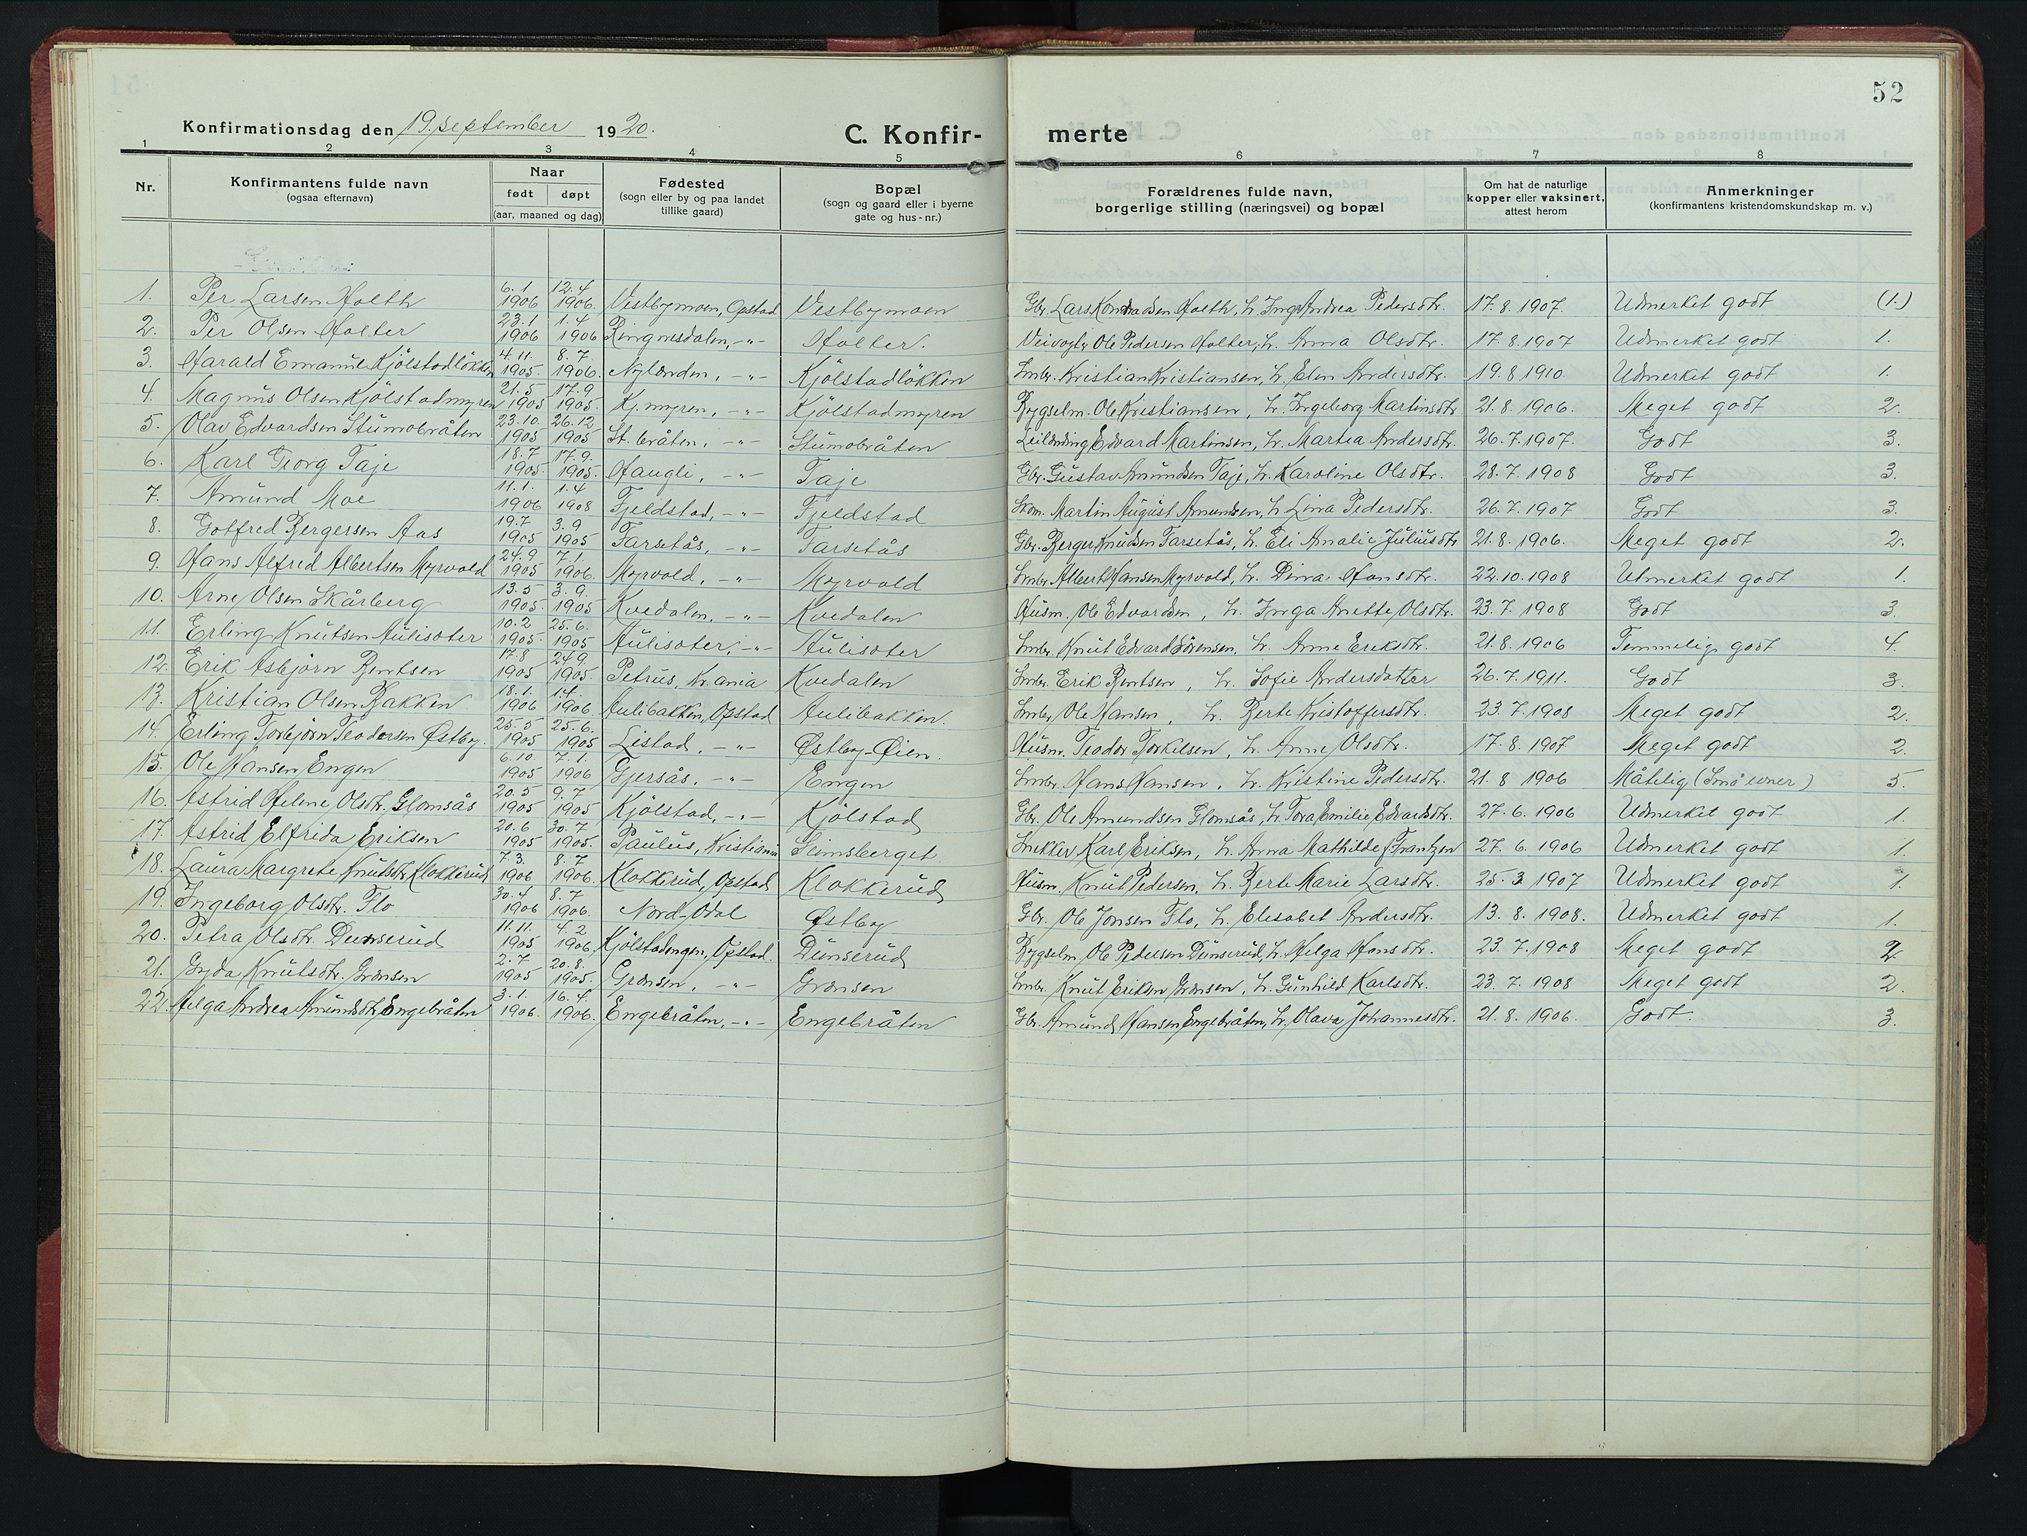 52
Konfirmationsdag den 19. september 1920.
C. Konfir- merte
1 2 3 4 5 6 7 8
Nr. Konfirmantens fulde navn (ogsaa efternavn) Naar født døpt (aar, maaned og dag) Fødested (sogn eller by og paa landet tillike gaard) Bopæl (sogn og gaard eller i byerne gate og hus-nr.) Forældrenes fulde navn, borgerlige stilling (næringsvei) og bopæl Om hat de naturlige kopper eller vaksinert, attest herom Anmerkninger (konfirmantens kristendomskundskap m. v.)
1. Per Larsen Holth 6.1 1906 12.4 1906. Vestbymoen, Opstad Vestbymoen Gbr. Lars Konradsen Holth, h. Inga Andrea Pedersdtr. 17.8.1907. Udmerket godt (1.)
2. Per Olsen Holter 23.1 1906 1.4 1906 Ringnesdalen, -"- Holter. Veivogter Ole Pedersen Holter, h. Anna Olsdtr. 17.8.1907 Udmerket godt 1.
3. Harald Emanuel Kjölstadlökken 4.11. 1905 8.7 1906. Nylænden, -"- Kjölstadlökken Smbr. Kristian Kristiansen, h. Elen Andersdtr. 19.8.1910 Udmerket godt 1.
4. Magnus Olsen Kjölstadmyren 21.5 1905 17.9 1905. Kj.myren, -"- Kjölstadmyren Bygselm. Ole Kristiansen, h. Ingeborg Martinsdtr 21.8.1906. Meget godt 2.
5. Olav Edvardsen Stumobråten 23.10. 1905 26.12 1905 St.bråten, -"- Stumobråten Leilending Edvard Martinsen, h. Martea Andersdtr. 26.7.1907. Godt 3.
6. Karl Georg Taje 18.7 1905 17.9. 1905. Haugli, -"- Taje Gbr. Gustav Amundsen Taje, h. Karoline Olsdtr. 28.7.1908 Godt 3.
7. Amund Moe 11.1. 1906 1.4 1908 Fjeldstad, -"- Fjeldstad Skom. Martin August Amundsen, h. Lina Pedersdtr. 26.7.1907 Godt 3.
8. Gotfred Bergersen Aas 19.7 1905 3.9 1905 Farsetås, -"- Farsetås Gbr. Berger Knudsen Farsetås, h. Eli Amalie Juliusdtr 21.8.1906. Meget godt 2.
9. Hans Alfred Albertsen Myrvold 24.9 1905 7.1. 1906. Myrvold, -"- Myrvold Smbr. Albert Hansen Myrvold, h. Dina Hansdtr. 22.10.1908 Utmerket godt 1.
10. Arne Olsen Skårberg 13.5 1905 3.9. 1905 Kvedalen, -"- Kvedalen Husm. Ole Edvardsen, h. Inga Anette Olsdtr. 23.7.1908 Godt 3.
11. Erling Knutsen Aulisæter 10.2 1905. 25.6. 1905 Aulisæter, -"- Aulisæter Smbr. Knut Edvard Sörensen, h. Anne Eriksdtr. 21.8.1906 Temmelig godt 4.
12. Erik Asbjörn Berntsen 17.8 1905 24.9. 1905. Petrus, Kr.ania Kvedalen Smbr. Erik Berntsen, h. Sofie Andersdatter 26.7.1911. Godt 3.
13. Kristian Olsen Bakken 18.1. 1906 1.4. 1906 Aulibakken, Opstad Aulibakken. Smbr. Ole Hansen, h. Berte Kristoffersdtr. 23.7.1908 Meget godt 2.
14. Erling Torbjörn Teodorsen Østby. 25.5 1905 25.6. 1905 Listad, -"- Østby-Øien. Husm. Teodor Torkelsen, h. Anne Olsdtr. 17.8.1907 Meget godt 2.
15. Ole Hansen Engen 6.10. 1905 7.1. 1906 Gjersås, -"- Engen Smbr. Hans Hansen, h. Kristine Pedersdtr. 21.8 1906 Måtelig (Små evner) 5.
16. Astrid Helene Olsdtr. Glomsås 20.5 1905 9.7 1905 Kjölstad, -"- Kjölstad Gbr. Ole Amundsen Glomsås, h. Tora Emilie Edvardsdtr. 27.6.1906 Udmerket godt 1.
17. Astrid Elfrida Eriksen 20.6 1905 30.7 1905. Paulus, Kristiania Slimsberget. Snekker Karl Eriksen, h. Anna Mathilde Frantzen 27.6.1906 Udmerket godt 1.
18. Laura Margrete Knutsdtr. Klokkerud 7.3. 1906 8.7 1906. Klokkerud, Opstad Klokkerud Husm. Knut Pedersen, h. Berte Marie Larsdtr. 25.3 1907 Udmerket godt 1.
19. Ingeborg Olsdtr. Flo 30.4 1906 8.7 1906. Nord-Odal Østby Gbr. Ole Jonsen Flo, h. Elisabet Andersdtr. 13.8.1908. Udmerket godt 1.
20. Petra Olsdtr. Dunserud 11.11. 1905 4.2 1906 Kjölstadengen, Opstad. Dunserud Bygselm. Ole Pedersen Dunserud, h. Helga Hansdtr. 23.7.1908 Meget godt 2.
21. Gyda Knutsdtr. Grænsen 2.7 1905 20.8. 1905. Grænsen, -"- Grænsen Smbr. Knut Eriksen Grænsen, h. Gunhild Karlsdtr. 23.7.1908 Meget godt 2.
22. Helga Andrea Amundsdtr. Engebråten 3.1. 1906. 16.4. 1906. Engebråten, -"- Engebråten Gbr. Amund Hansen Engebråten, h. Olava Johannesdtr. 21.8.1906. Godt. 3.